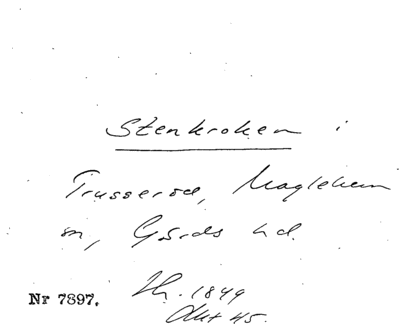 Stenkroken i
Trusseröd, Maglehem
sn, Gärds hd.
Nr 7897.
Lh. 1849
Akt 45.